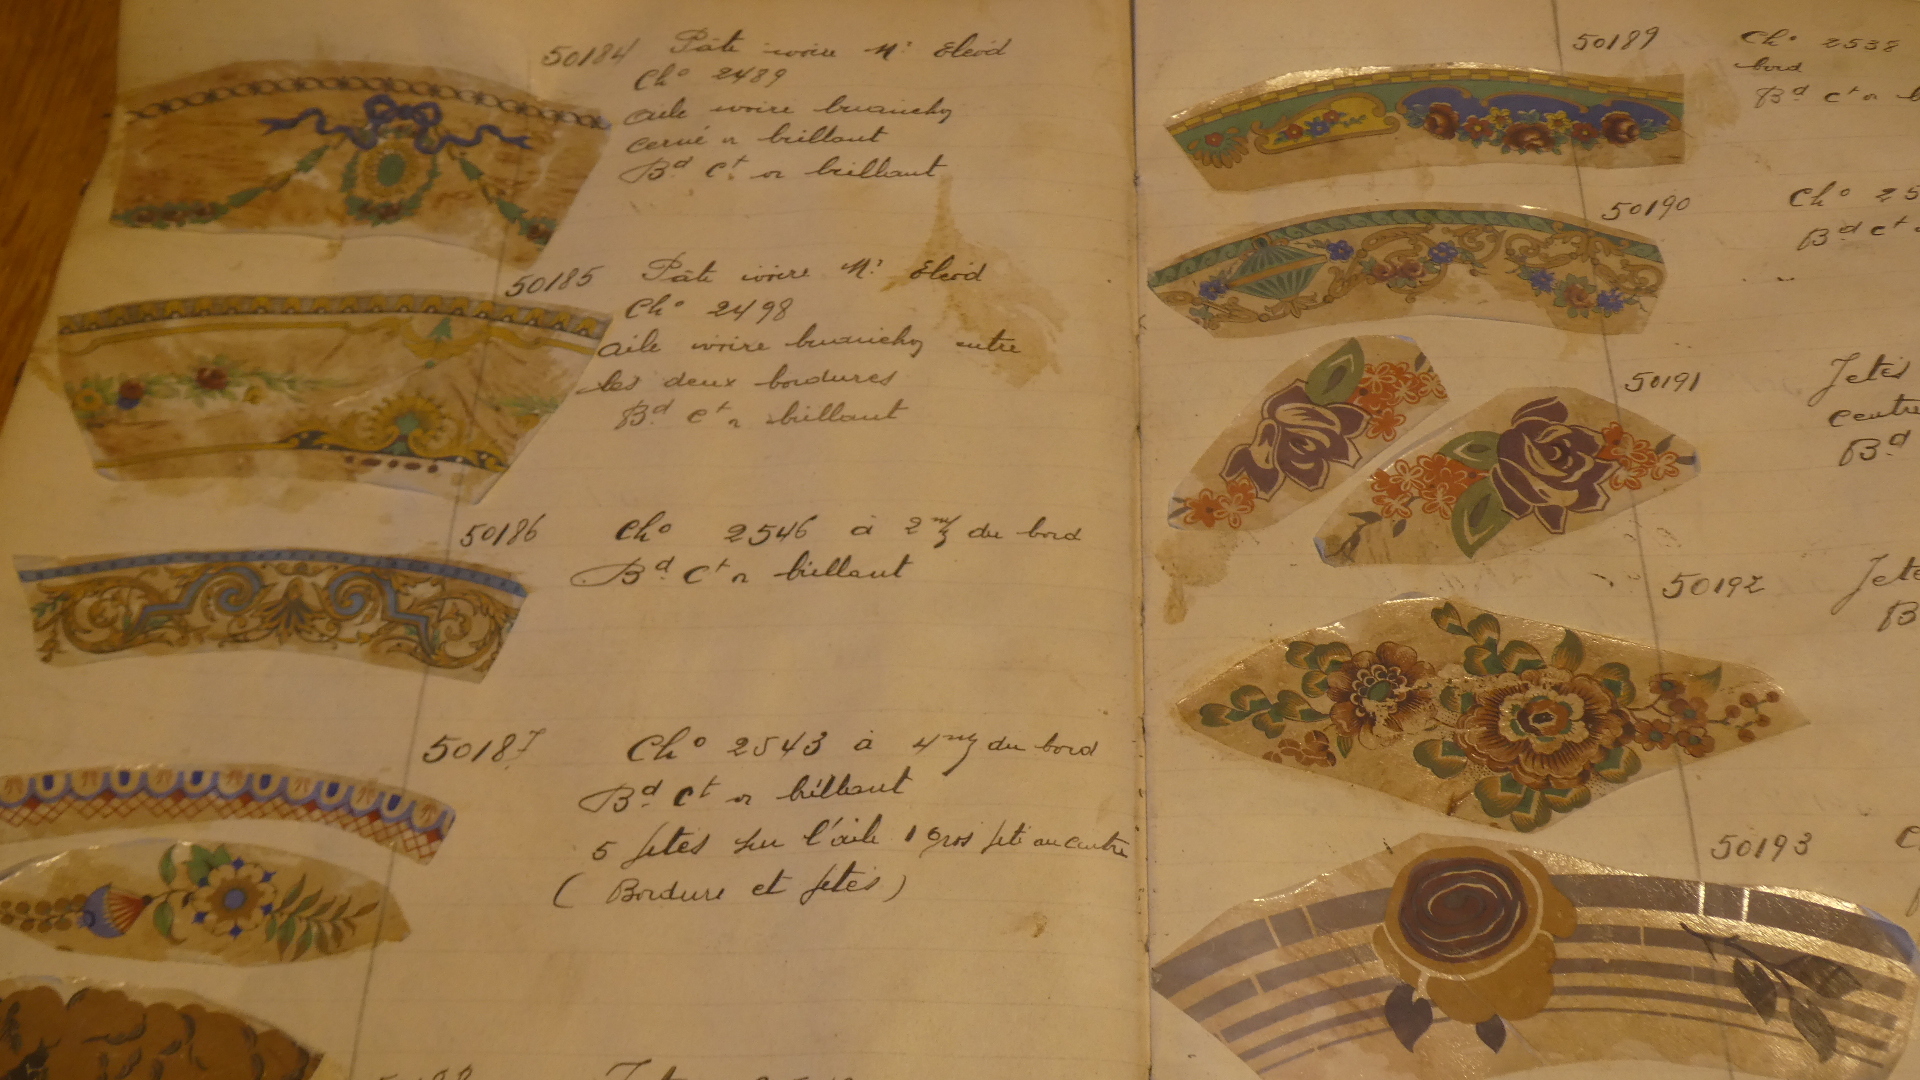 50184 Pâte ivoire Nº Eleod
Chº 2489
aile ivoire
cerné or brillant
Bd Ct or brillant
50185 Pâte ivoire Nº Eleod
Chº 2498
aile ivoire entre
les deux bordures
Bd Ct or brillant
50186 Chº 2546 à 2 m/ du bord
Bd Ct or brillant
50187 Chº 2543 à 4 m/ du bord
Bd Ct or brillant
5 Jetés sur l'aile 1 gros jeté au centre
( Bordure et Jetés )
50189 Chº 2538
bord
Bd Ct or b
50190 Chº 25
Bd Ct
50191 Jetés
centre
Bd
50192 Jeté
B
50193 C